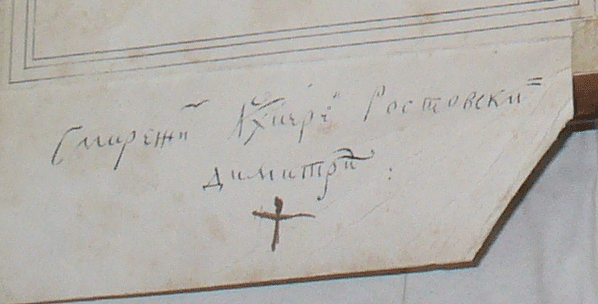 Смирежⷩ҇и Архиерⷺ Ростовскⷩи=
Димитрⷩи :